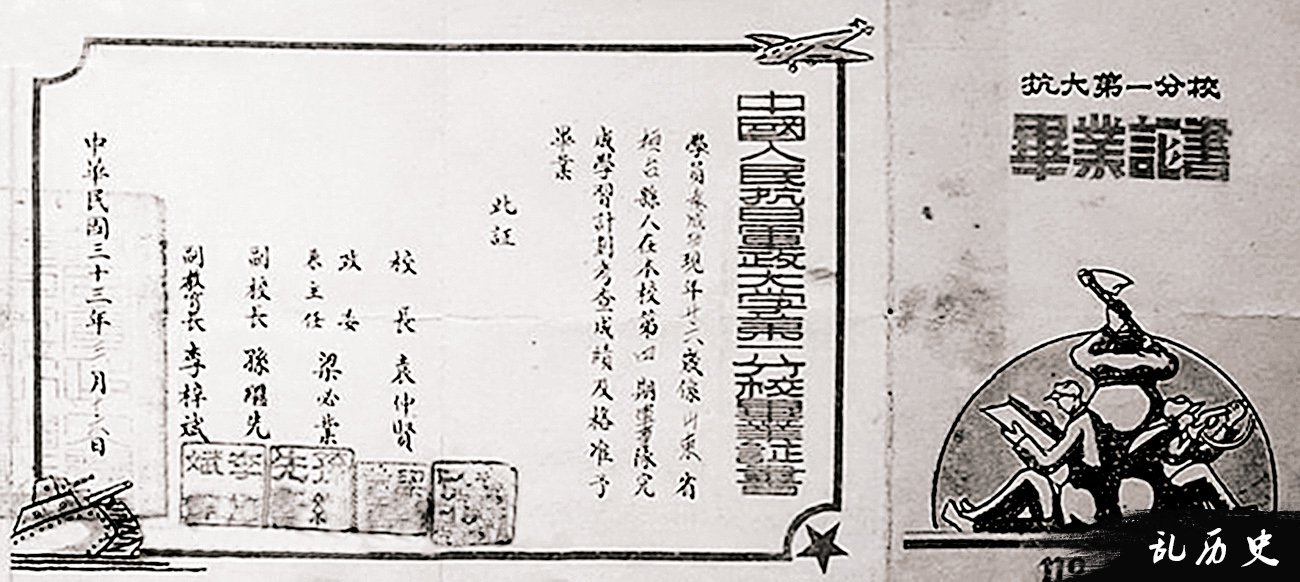 抗大第一分校
畢業証書
中國人民抗日軍政大学第一分校畢業証書
學員現年廿六歲係山東省
桓台縣人在本校第四期軍事隊完
成學習計劃考查成績及格准予
畢業
此証
校長 袁仲賢
政委
主任 梁必業
副校長 孫繼先
副教育長 李梓斌
中華民國三十三年二月日
乱历史